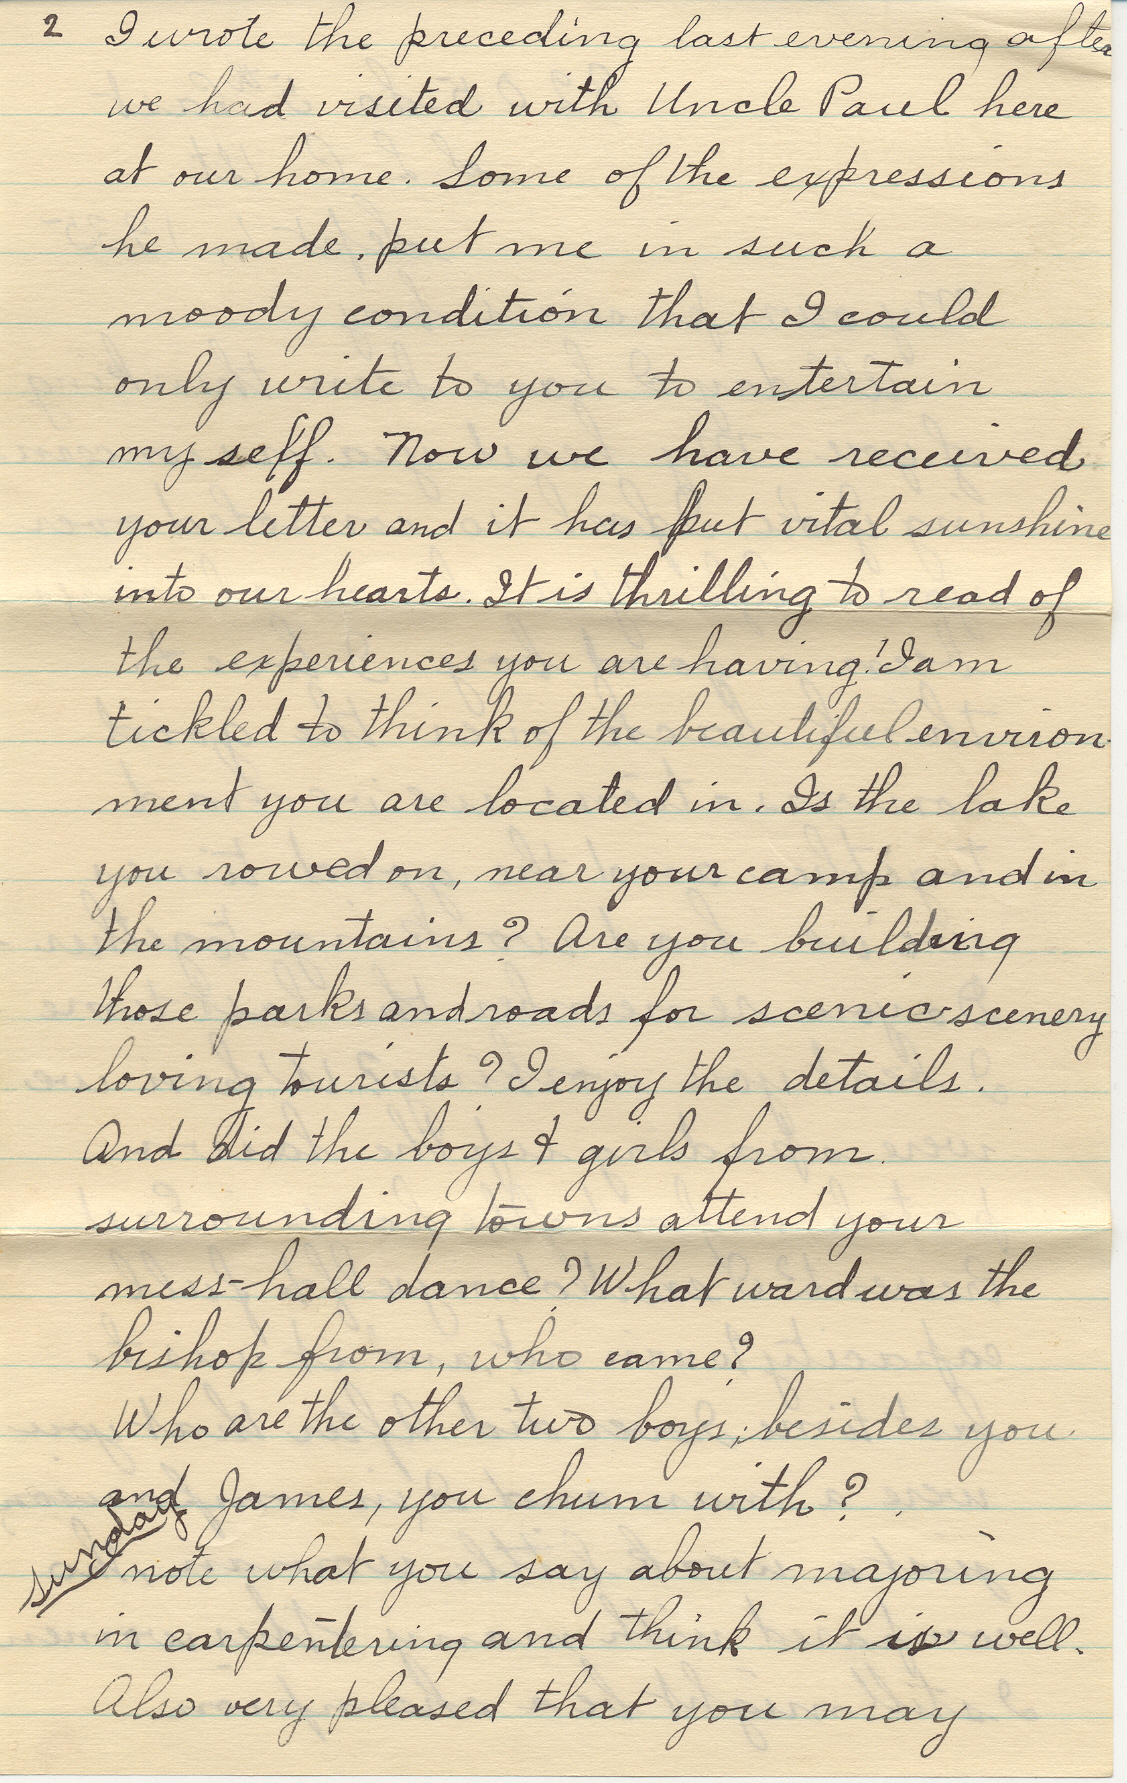 2 I wrote the preceding last evening after
we had visited with Uncle Paul here
at our home. Some of the expressions
he made, put me in such a
moody condition that I could
only write to you to entertain
my self. Now we have received
your letter and it has put vital sunshine
into our hearts. It is thrilling to read of
the experiences you are having! I am
tickled to think of the beautiful environ-
ment you are located in. Is the lake
you rowed on, near your camp and in
the mountains? Are you building
those parks and roads for scenic-scenery
loving tourists? I enjoy the details.
And did the boys & girls from
surrounding towns attend your
mess-hall dance? What ward was the
bishop from, who came?
Who are the other two boys, besides you
and James, you chum with?
Sunday
note what you say about majoring
in carpentering and think it is well.
Also very pleased that you may